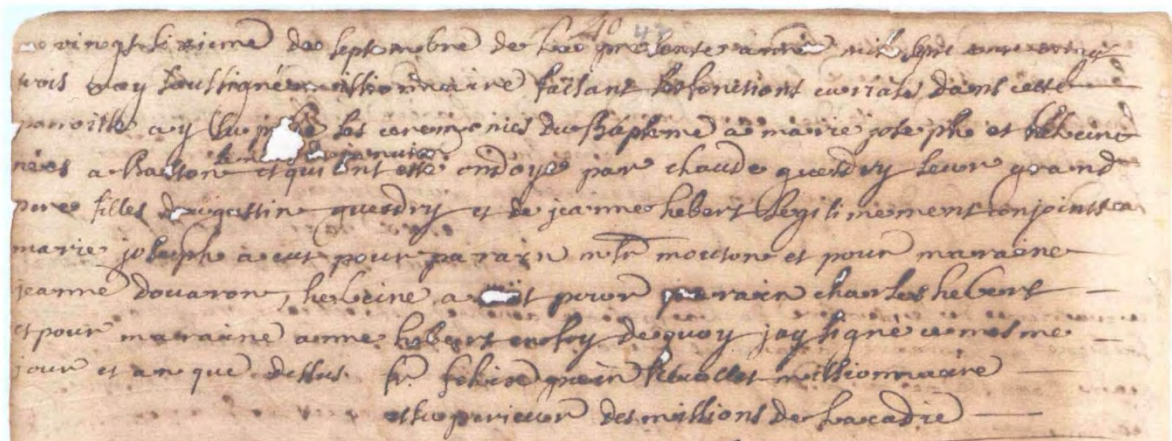 vingt sixieme de septembre de la presente année mil sept cent vingt
trois moy soussigné missionnaire faisant les fonctions curiales dans cette
paroisse ay les ceremonies du Bapteme a marie josephe et heleine
nées a Baston et qui ont esté ondoyé par claude guerdry leur grand
pere filles d'augustin guerdry et de jeanne hebert legitimement conjoints a
marie josephe a eut pour parain mr moutone et pour maraine
jeanne douaron, heleine a eut pour parain charles hebert
et pour maraine anne hebert en foy de quoy jay signé ce mesme
jour et an que dessus fr. felix missionnaire
et superieur des missions de lacadie